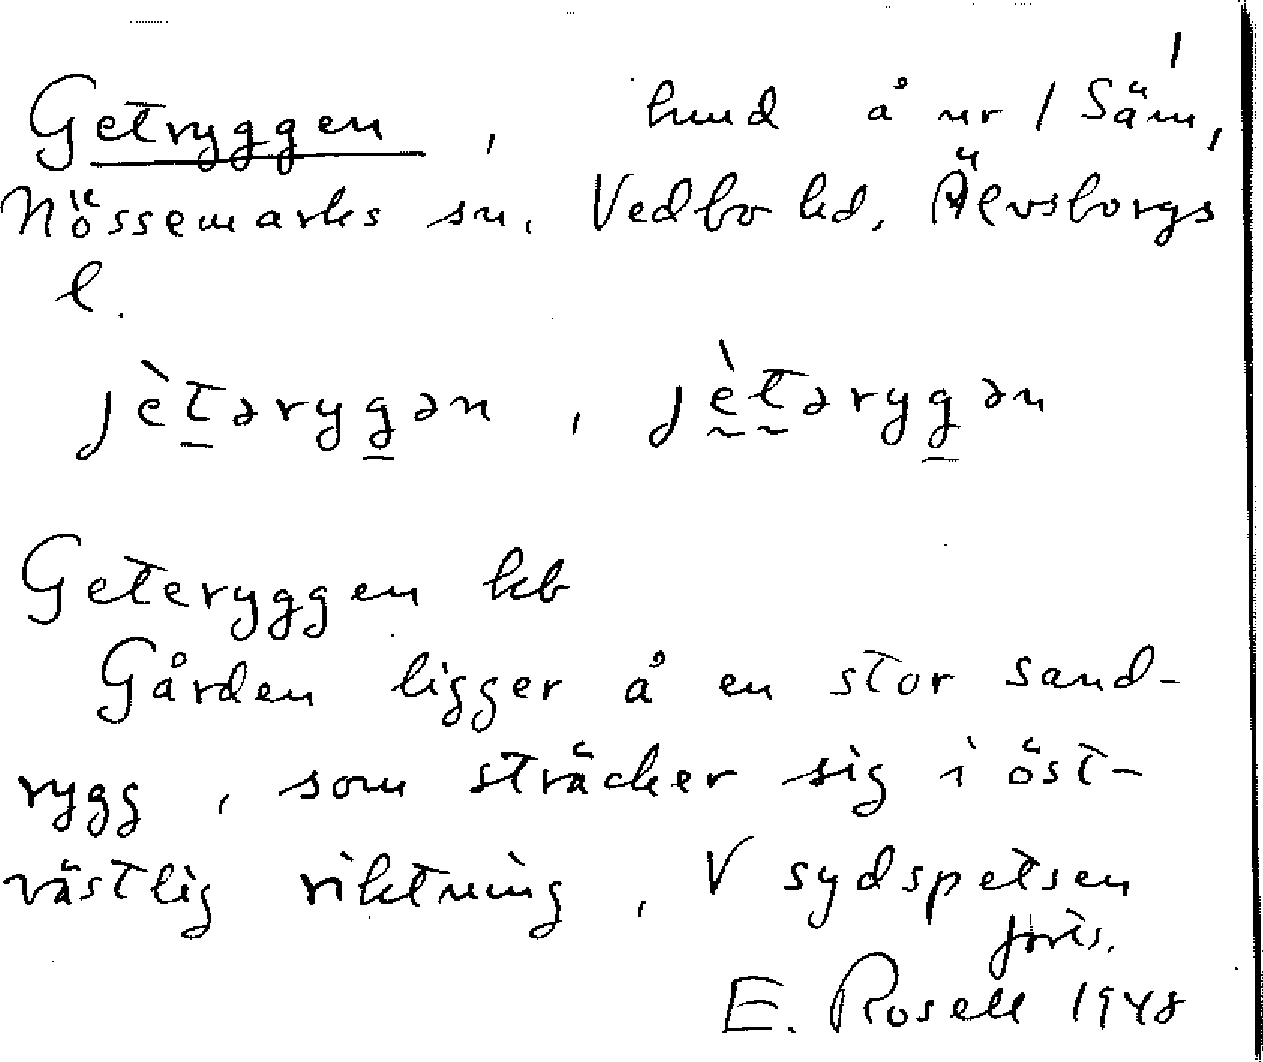 1
Getryggen, lmd å nr 1 Säm,
Nössemarks sn. Vedbo hd, Älvsborgs
l.
jètərygən, jètərygən
Geteryggen kb
Gården ligger å en stor sand-
rygg, som sträcker sig i öst-
västlig riktning, V sydspetsen
forts.
E. Rosell 1948